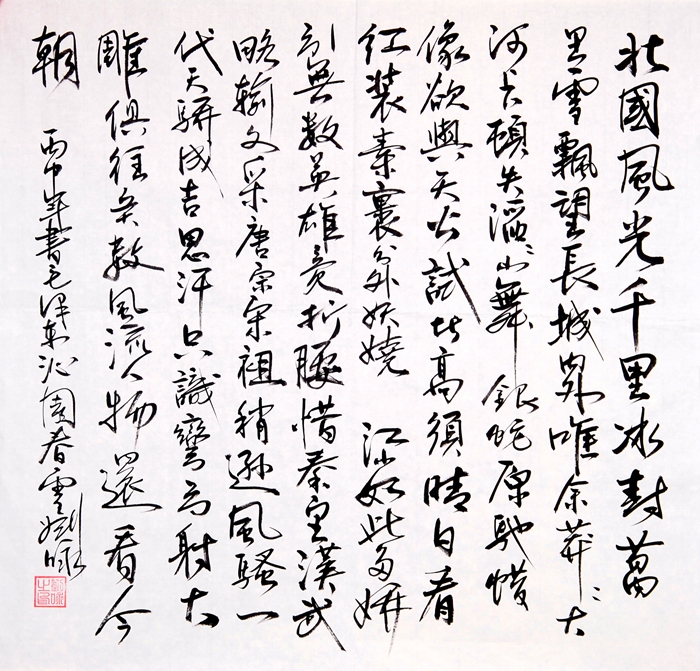 北國風光千里冰封萬
里雪飄望長城內外唯余莽〻大
河上下頓失滔〻山舞銀蛇原馳蠟
像欲與天公試比高須晴日看
紅裝素裹分外妖嬈 江山如此多嬌
引無數英雄竞折腰惜秦皇漢武
略輸文采唐宗宋祖稍遜風騷一
代天驕成吉思汗只識彎弓射大
雕俱往矣數風流人物還看今
朝 丙申年書毛澤東沁園春雪